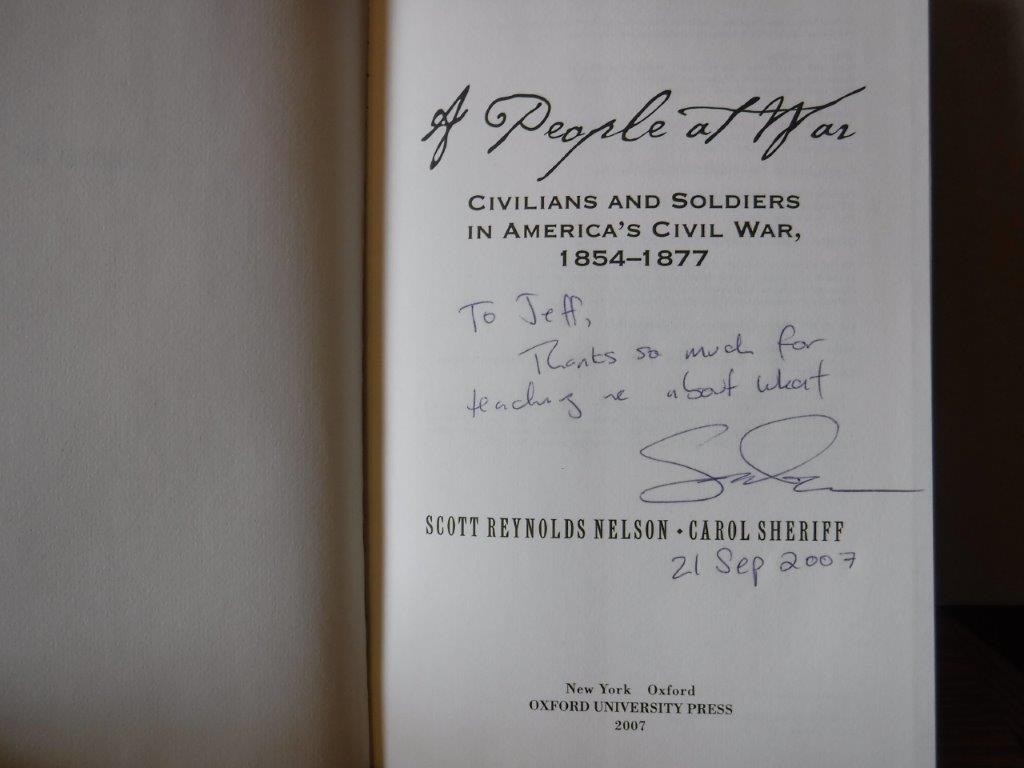 A People at War
CIVILIANS AND SOLDIERS
IN AMERICA'S CIVIL WAR,
1854–1877
To Jeff,
Thanks so much for
teaching me about what
SCOTT REYNOLDS NELSON • CAROL SHERIFF
21 Sep 2007
New York Oxford
OXFORD UNIVERSITY PRESS
2007